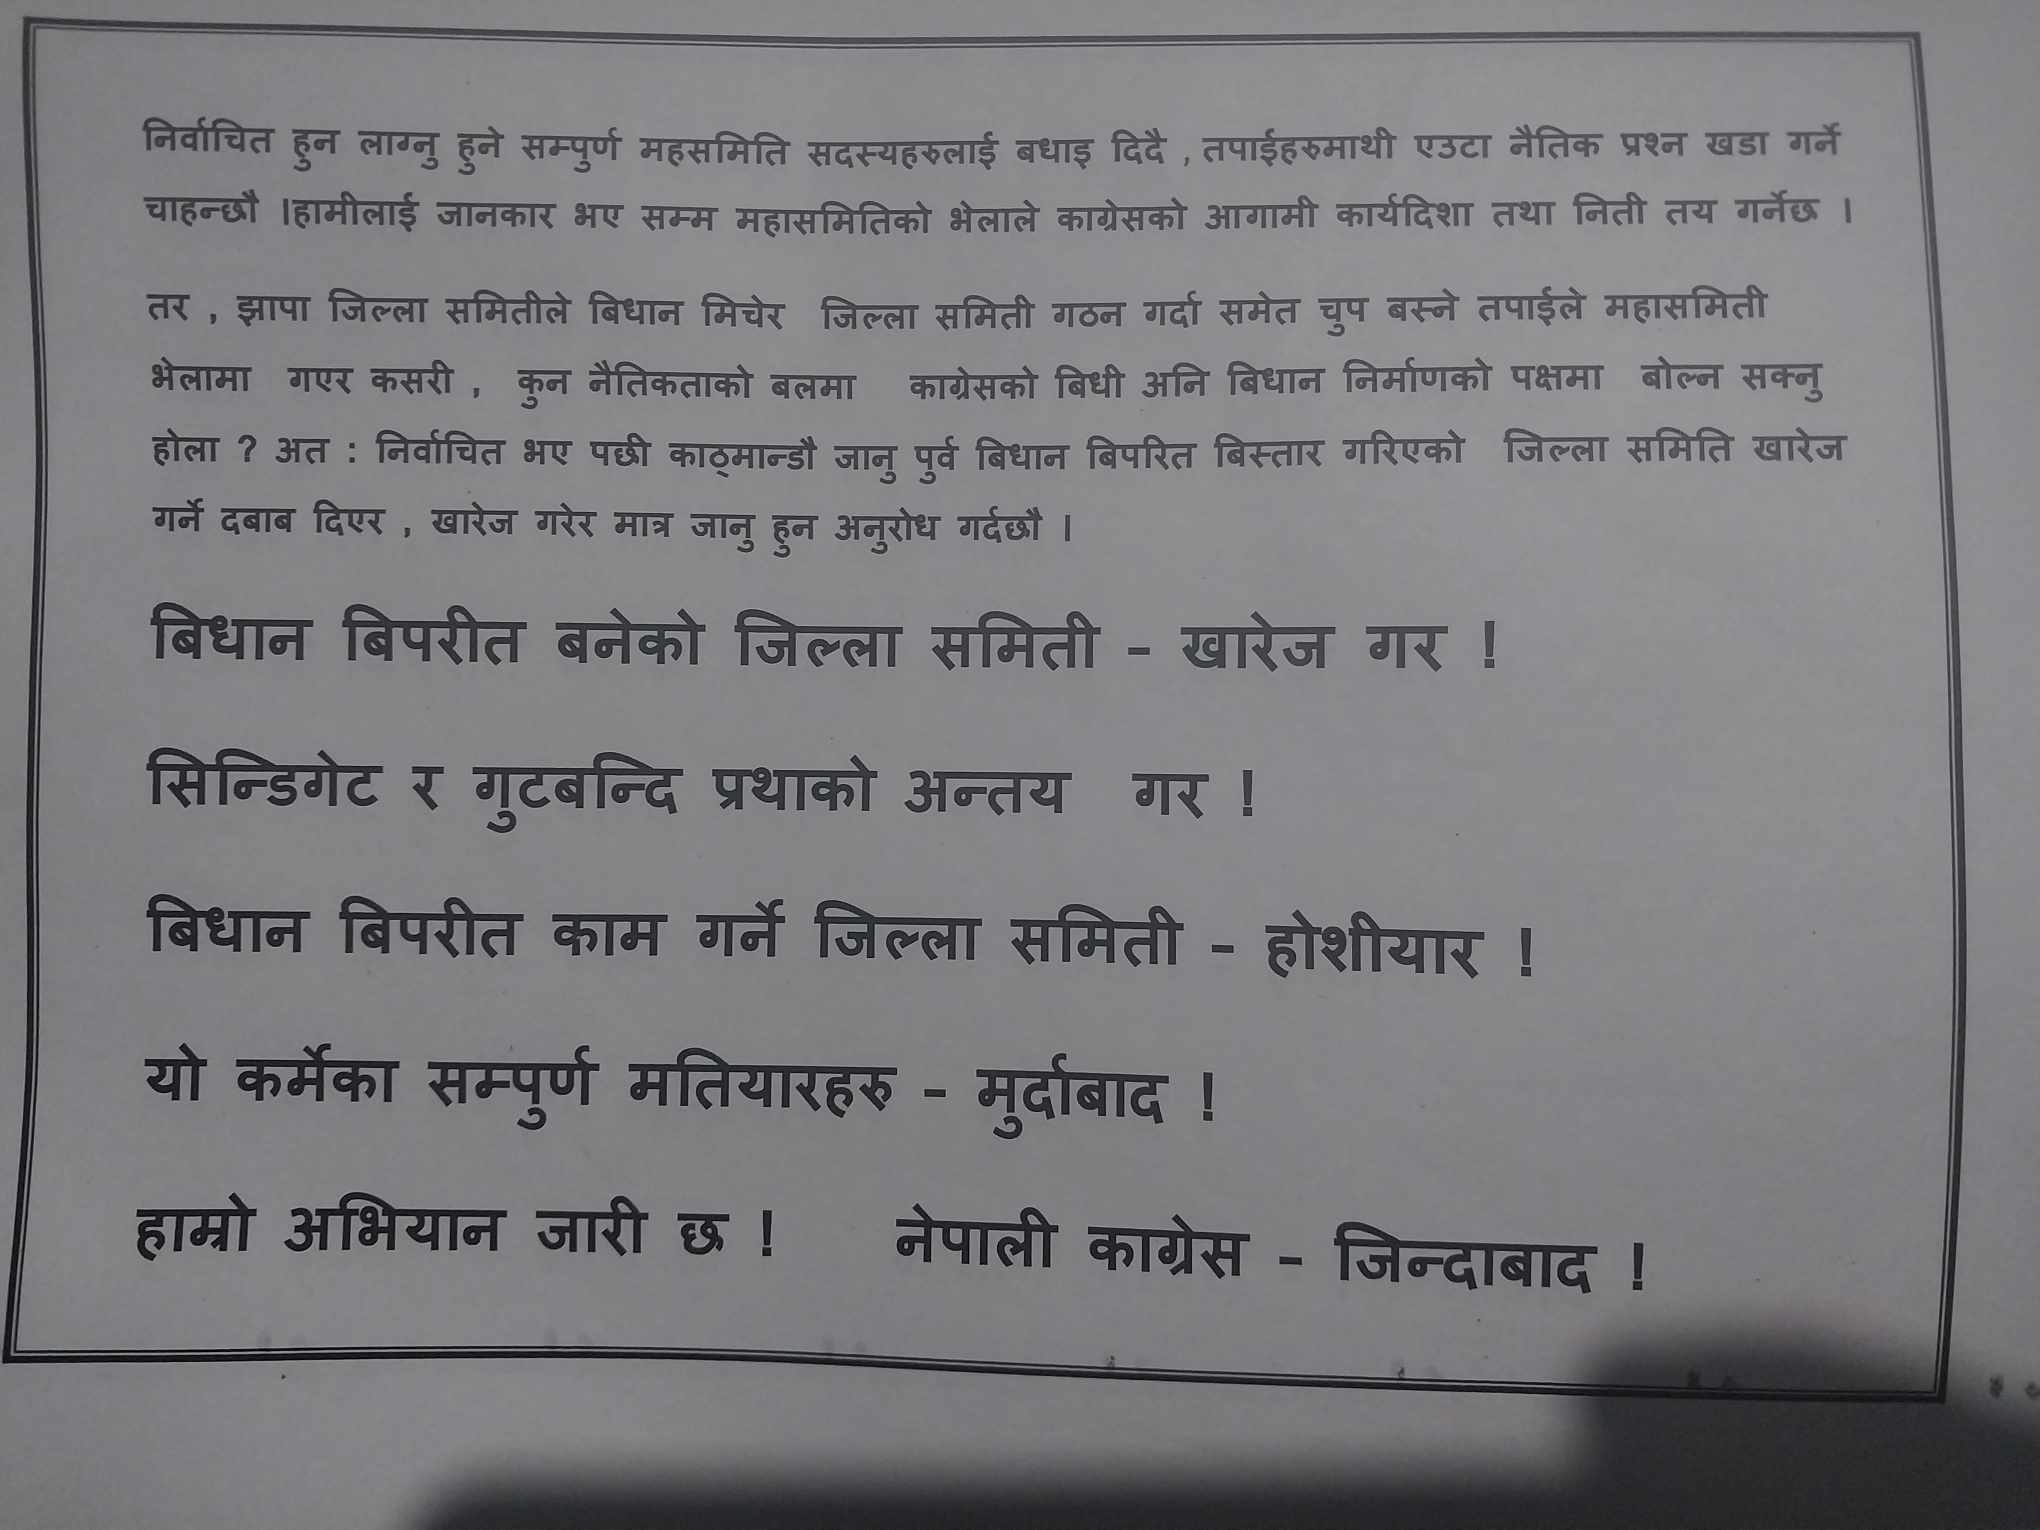 निर्वाचित हुन लाग्नु हुने सम्पुर्ण महसमिति सदस्यहरुलाई बधाइ दिदै , तपाईहरुमाथी एउटा नैतिक प्रश्न खडा गर्ने
चाहन्छौ ।हामीलाई जानकार भए सम्म महासमितिको भेलाले काग्रेसको आगामी कार्यदिशा तथा निती तय गर्नेछ ।
तर , झापा जिल्ला समितीले बिधान मिचेर जिल्ला समिती गठन गर्दा समेत चुप बस्ने तपाईले महासमिती
भेलामा गएर कसरी , कुन नैतिकताको बलमा काग्रेसको बिधी अनि बिधान निर्माणको पक्षमा बोल्न सक्नु
होला ? अत : निर्वाचित भए पछी काठ्मान्डौ जानु पुर्व बिधान बिपरित बिस्तार गरिएको जिल्ला समिति खारेज
गर्ने दबाब दिएर , खारेज गरेर मात्र जानु हुन अनुरोध गर्दछौ ।
बिधान बिपरीत बनेको जिल्ला समिती - खारेज गर !
सिन्डिगेट र गुटबन्दि प्रथाको अन्तय गर !
बिधान बिपरीत काम गर्ने जिल्ला समिती - होशीयार !
यो कर्मेका सम्पुर्ण मतियारहरु - मुर्दाबाद !
हाम्रो अभियान जारी छ ! नेपाली काग्रेस - जिन्दाबाद !